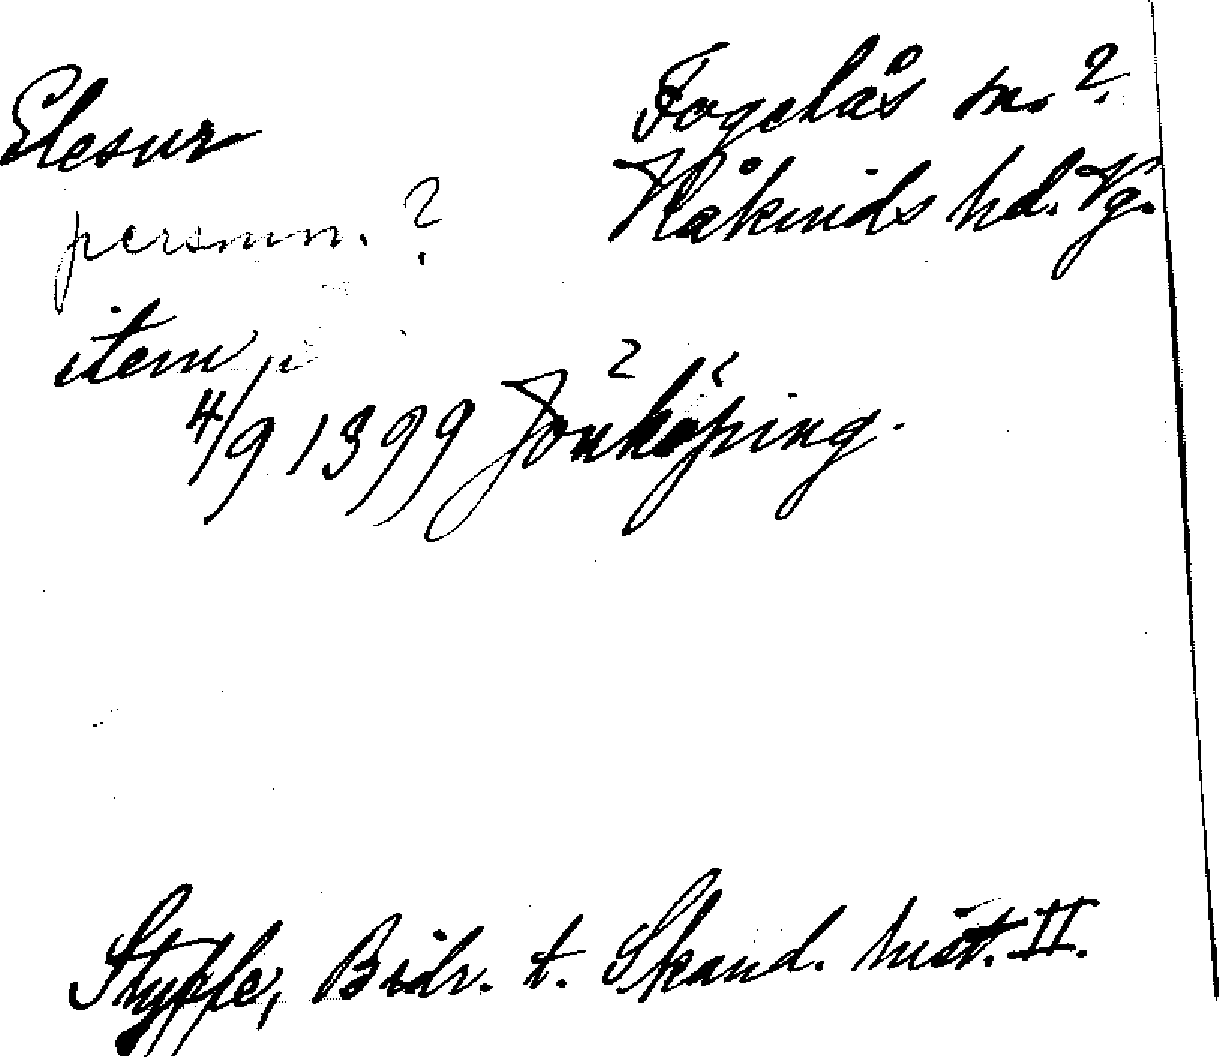 Elesur
Fogelås sn. ?
Kåkinds hd. Vg.
personn. ?
item
4/9 1399 Jönköping.
Styffe, Bidr. t. Skand. hist. II.